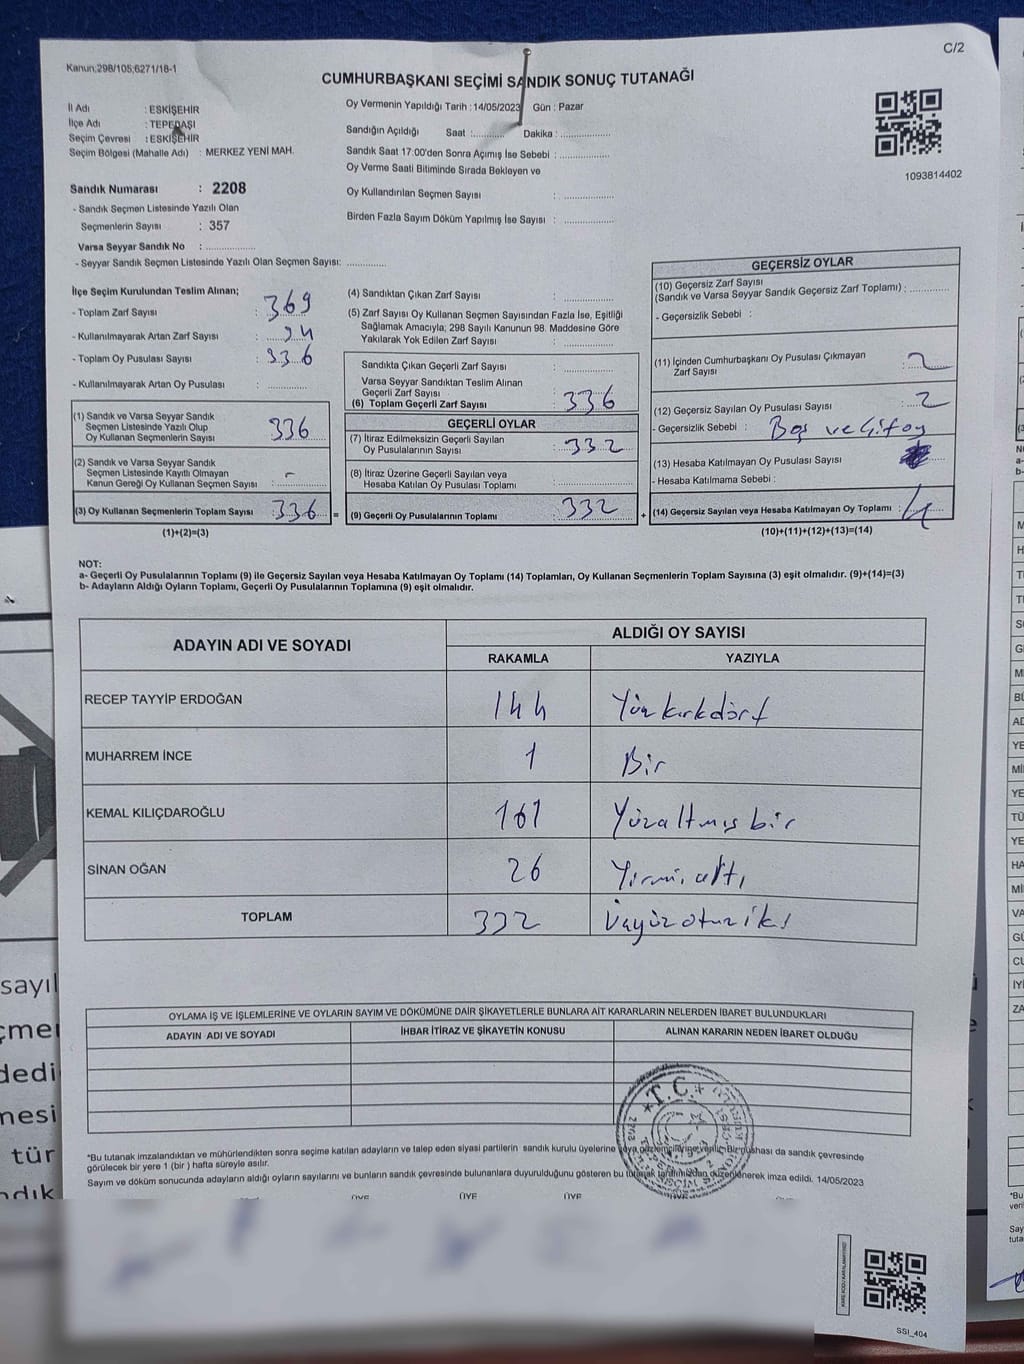 C/2
Kanun:298/105;6271/18-1
CUMHURBAŞKANI SEÇİMİ SANDIK SONUÇ TUTANAĞI
İl Adı : ESKİŞEHİR
İlçe Adı : TEPEBAŞI
Seçim Çevresi : ESKİŞEHİR
Seçim Bölgesi (Mahalle Adı) : MERKEZ YENİ MAH.
Sandık Numarası : 2208
- Sandık Seçmen Listesinde Yazılı Olan
Seçmenlerin Sayısı : 357
Varsa Seyyar Sandık No : ..............
- Seyyar Sandık Seçmen Listesinde Yazılı Olan Seçmen Sayısı: ...........
Oy Vermenin Yapıldığı Tarih : 14/05/2023 Gün : Pazar
Sandığın Açıldığı Saat :.......... Dakika : ..............
Sandık Saat 17:00'den Sonra Açımış İse Sebebi : ..............
Oy Verme Saati Bitiminde Sırada Bekleyen ve
Oy Kullandırılan Seçmen Sayısı : ..............
Birden Fazla Sayım Döküm Yapılmış İse Sayısı : ..............
1093814402
İlçe Seçim Kurulundan Teslim Alınan;
- Toplam Zarf Sayısı : 369
- Kullanılmayarak Artan Zarf Sayısı :
- Toplam Oy Pusulası Sayısı : 336
- Kullanılmayarak Artan Oy Pusulası : ...........
(1) Sandık ve Varsa Seyyar Sandık
Seçmen Listesinde Yazılı Olup
Oy Kullanan Seçmenlerin Sayısı 336
(2) Sandık ve Varsa Seyyar Sandık
Seçmen Listesinde Kayıtlı Olmayan
Kanun Gereği Oy Kullanan Seçmen Sayısı : -
(3) Oy Kullanan Seçmenlerin Toplam Sayısı : 336 =
(1)+(2)=(3)
(4) Sandıktan Çıkan Zarf Sayısı : ..............
(5) Zarf Sayısı Oy Kullanan Seçmen Sayısından Fazla İse, Eşitliği
Sağlamak Amacıyla; 298 Sayılı Kanunun 98. Maddesine Göre
Yakılarak Yok Edilen Zarf Sayısı : ..............
Sandıkta Çıkan Geçerli Zarf Sayısı : ..............
Varsa Seyyar Sandıktan Teslim Alınan
Geçerli Zarf Sayısı
(6) Toplam Geçerli Zarf Sayısı : 336
GEÇERLİ OYLAR
(7) İtiraz Edilmeksizin Geçerli Sayılan
Oy Pusulalarının Sayısı : 332
(8) İtiraz Üzerine Geçerli Sayılan veya
Hesaba Katılan Oy Pusulası Toplamı : ..............
(9) Geçerli Oy Pusulalarının Toplamı : 332 +
GEÇERSİZ OYLAR
(10) Geçersiz Zarf Sayısı
(Sandık ve Varsa Seyyar Sandık Geçersiz Zarf Toplamı) : ...........
- Geçersizlik Sebebi :
(11) İçinden Cumhurbaşkanı Oy Pusulası Çıkmayan
Zarf Sayısı : 2
(12) Geçersiz Sayılan Oy Pusulası Sayısı : 2
- Geçersizlik Sebebi : Boş ve Çift oy
(13) Hesaba Katılmayan Oy Pusulası Sayısı :
- Hesaba Katılmama Sebebi :
(14) Geçersiz Sayılan veya Hesaba Katılmayan Oy Toplamı : 4
(10)+(11)+(12)+(13)=(14)
NOT:
a- Geçerli Oy Pusulalarının Toplamı (9) ile Geçersiz Sayılan veya Hesaba Katılmayan Oy Toplamı (14) Toplamları, Oy Kullanan Seçmenlerin Toplam Sayısına (3) eşit olmalıdır. (9)+(14)=(3)
b- Adayların Aldığı Oyların Toplamı, Geçerli Oy Pusulalarının Toplamına (9) eşit olmalıdır.
ADAYIN ADI VE SOYADI ALDIĞI OY SAYISI
RAKAMLA YAZIYLA
RECEP TAYYİP ERDOĞAN 144 Yüz kırkdört
MUHARREM İNCE 1 Bir
KEMAL KILIÇDAROĞLU 161 Yüzaltmış bir
SİNAN OĞAN 26 Yirmi altı
TOPLAM 332 üçyüz otuz iki
OYLAMA İŞ VE İŞLEMLERİNE VE OYLARIN SAYIM VE DÖKÜMÜNE DAİR ŞİKAYETLERLE BUNLARA AİT KARARLARIN NELERDEN İBARET BULUNDUKLARI
ADAYIN ADI VE SOYADI İHBAR İTİRAZ VE ŞİKAYETİN KONUSU ALINAN KARARIN NEDEN İBARET OLDUĞU
*Bu tutanak imzalandıktan ve mühürlendikten sonra seçime katılan adayların ve talep eden siyasi partilerin sandık kurulu üyelerine veya gözlemcilerine verilir. Bir nüshası da sandık çevresinde
görülecek bir yere 1 (bir ) hafta süreyle asılır.
Sayım ve döküm sonucunda adayların aldığı oyların sayılarını ve bunların sandık çevresinde bulunanlara duyurulduğunu gösteren bu tutanak tarafımızdan düzenlenerek imza edildi. 14/05/2023
T.C.
ÜYE ÜYE ÜYE ÜYE
SSI_404
sayıl
dedi
mesi
tür